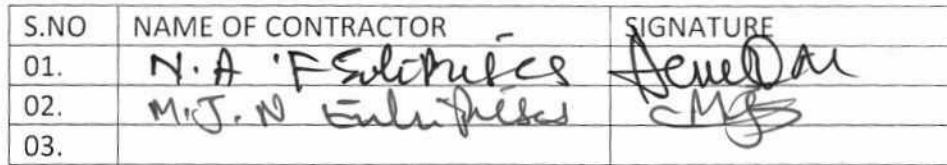 S.NO NAME OF CONTRACTOR SIGNATURE
01. N. A
02. M.J.N Enterprises
03.